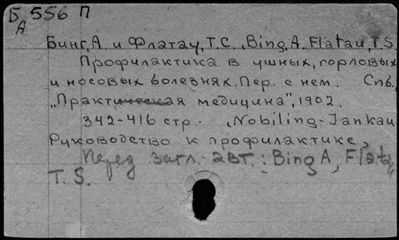 Б 556 П
А
Бинг, А. и Флатау, Т.С., Bing, A. Flatau, T.S.
Профилактика в ушных, горловых
и носовых болезнях. Пер. с нем. Спб.,
„Практическая медицина", 1902.
342-416 стр. „Nobiling-Jankau
Руководство к профилактике,
Перед загл. авт.: Bing A, Flatau
T. S.